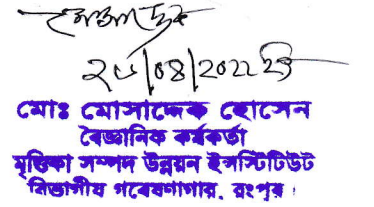 ২৬/০৪/২০২২ ইং
মোঃ মোসাদ্দেক হোসেন
বৈজ্ঞানিক কর্মকর্তা
মৃত্তিকা সম্পদ উন্নয়ন ইন্সটিটিউট
বিভাগীয় গবেষণাগার, রংপুর।